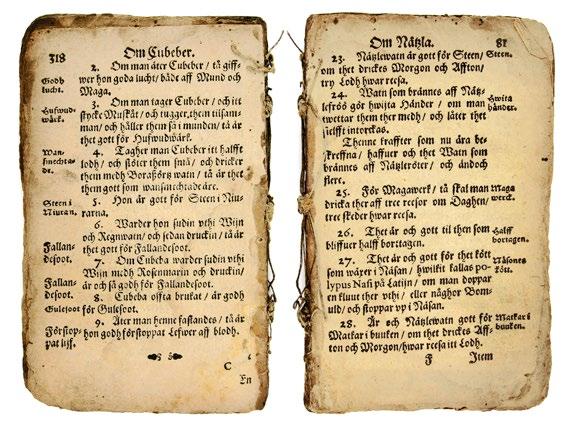 318 Om Cubeber.
2. Om man åter Cubeber / tå giff-
Godh lucht.
wer hon goda lucht / både aff Mund och
Maga.
3. Om man tager Cubeber / och itt
Hufwud-wärk.
stycke Muskåt / och tugger them tilsam-
man / och håller them så i munden / tå är
thet gott för Hufwudwärk.
4. Tagher man Cubeber itt halfft
Wan-sinnechta-de.
lodh / och stöter them små / och dricker
them medh Boraförß watn / tå är thet
them gott som wansinnechtade äre.
5. Hon är gott för Steen i Niu-
Steen i Niuran.
rarna.
6. Warder hon sudin vthi Wijn
och Regnwatn / och sedan druckin / tå är
Fallan-desoot.
thet gott för Fallandesoot.
7. Om Cubeba warder sudin vthi
Wijn medh Rosenmarin och druckin /
Fallan-desoot.
är och så godh för Fallandesoot.
8. Cubeba offta brukat / är godh
Gulesoot
för Gulesoot.
9. Åter man henne fastandes / tå är
Förstop-pat lif.
hon godh förstoppat Lefwer aff blodh.
C
En
Om Nätzla. 81
23. Nätzlewatn är gott för Steen /
Steen.
om thet drickes Morgon och Affton /
try Lodh hwar reesa.
24. Watn som brännes aff Nätz-
lefröö gör hwijta Händer / om man
Hwita händer.
twettar them ther medh / och låter thet
sielfft intorckas.
Thenne kraffter som nu ära be-
skreffna / haffuer och thet Watn som
brännes aff Nätzleröter / och ändoch
flere.
25. För Magawerk / tå skal man
Maga werck.
dricka ther aff tree reesor om Daghen /
tree skeder hwar reesa.
26. Thet är och gott til then som
Halff bortagen.
bliffuer halff bortagen.
27. Thet är och gott för thet kött
Näsones kött.
som wäxer i Näsan / hwilkit kallas po-
lypus Nasi på Latijn / om man doppar
en kluut ther vthi / eller någhor Bom-
uld / och stoppar vp i Näsan.
28. Är och Nätzlewatn gott för
Matkar i buuken.
Matkar i buuken / om thet drickes Aff-
ton och Morgon / hwar reesa itt Lodh.
F Item